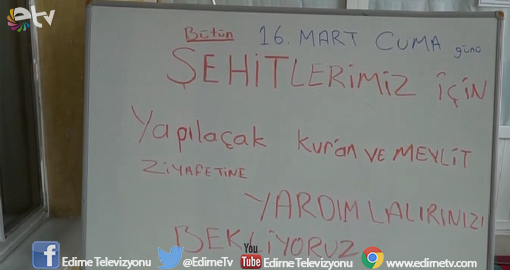 etv
Bütün 16. MART CUMA günü
ŞEHİTLERİMİZ İÇİN
Yapılaçak Kur'an VE MEVLİT
ZİYAFETİNE
YARDIMLALIRINIZI
BEKLİYORUZ
Edirne Televizyonu @EdirneTv You Tube Edirne Televizyonu www.edirnetv.com